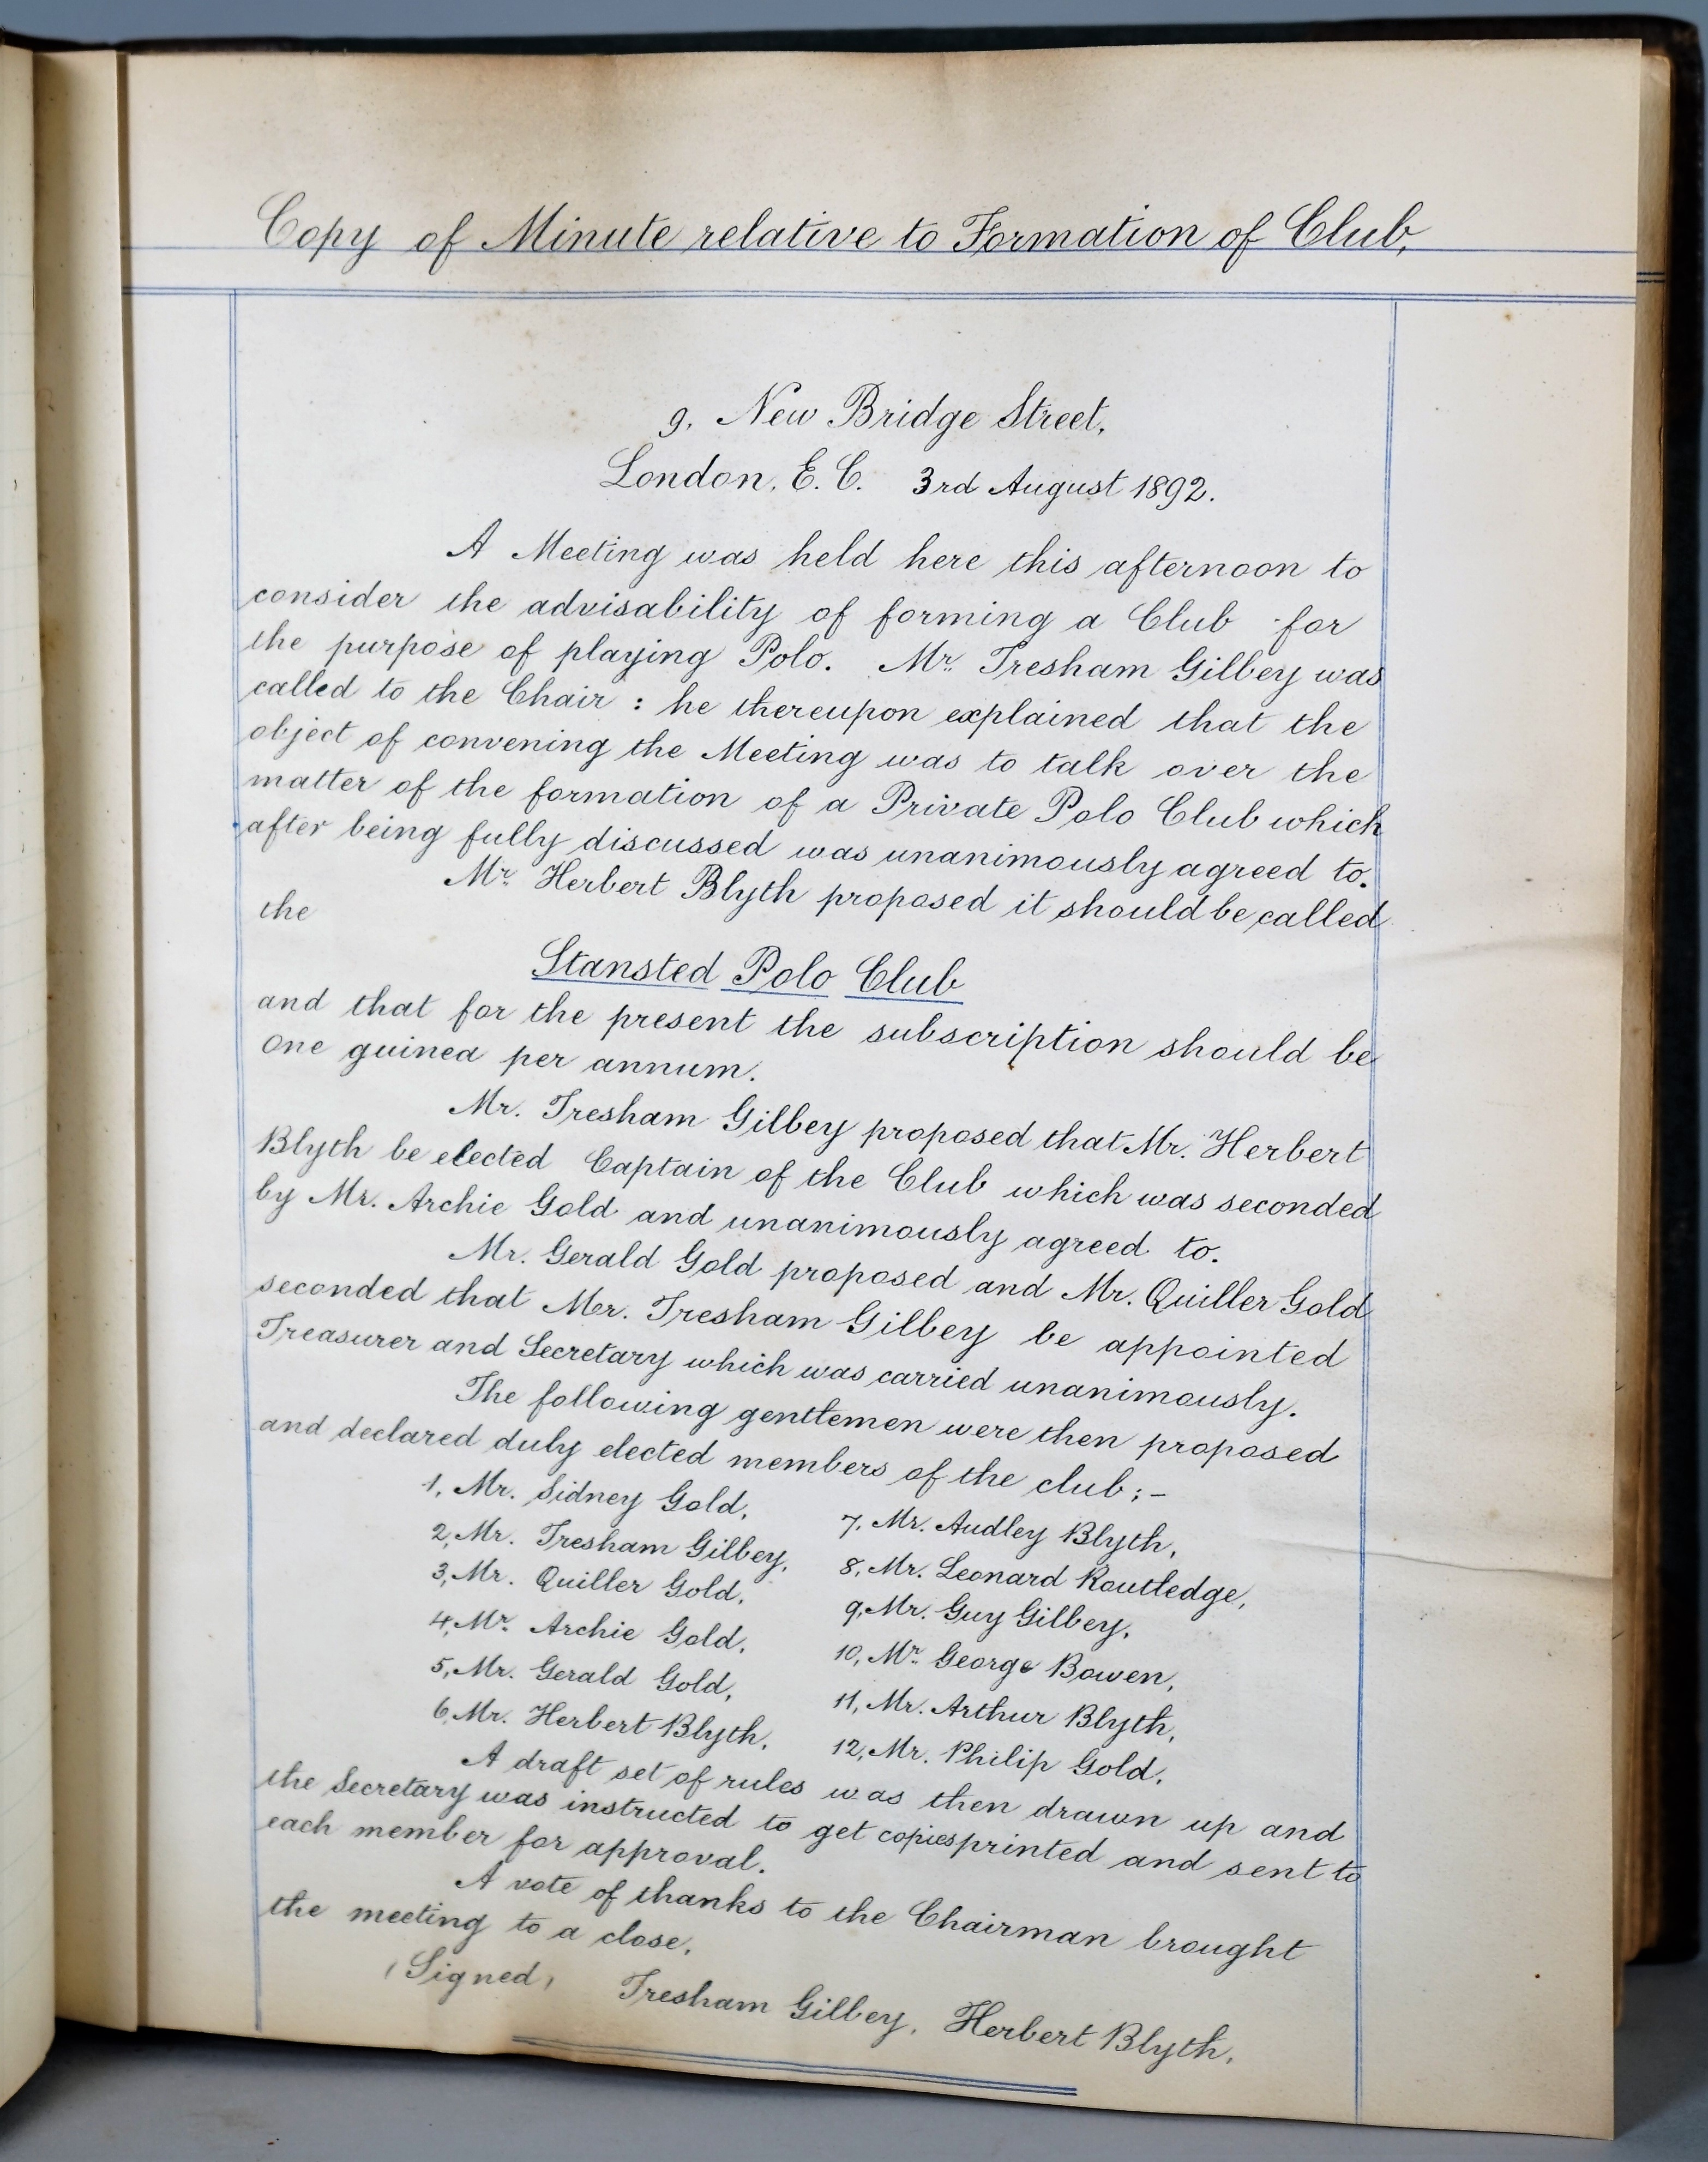 Copy of Minute relative to Formation of Club,
9, New Bridge Street,
London, E. C. 3rd August 1892.
A Meeting was held here this afternoon to
consider the advisability of forming a Club for
the purpose of playing Polo. Mr. Tresham Gilbey was
called to the Chair : he thereupon explained that the
object of convening the Meeting was to talk over the
matter of the formation of a Private Polo Club which
after being fully discussed was unanimously agreed to.
Mr. Herbert Blyth proposed it should be called
the
Stansted Polo Club
and that for the present the subscription should be
One guinea per annum.
Mr. Tresham Gilbey proposed that Mr. Herbert
Blyth be elected Captain of the Club which was seconded
by Mr. Archie Gold and unanimously agreed to.
Mr. Gerald Gold proposed and Mr. Quiller Gold
seconded that Mr. Tresham Gilbey be appointed
Treasurer and Secretary which was carried unanimously.
The following gentlemen were then proposed
and declared duly elected members of the club ; -
1, Mr. Sidney Gold,
2, Mr. Tresham Gilbey,
3, Mr. Quiller Gold,
4, Mr. Archie Gold,
5, Mr. Gerald Gold,
6, Mr. Herbert Blyth,
7, Mr. Audley Blyth,
8, Mr. Leonard Routledge,
9, Mr. Guy Gilbey,
10, Mr. George Bowen,
11, Mr. Arthur Blyth,
12, Mr. Philip Gold,
A draft set of rules was then drawn up and
the Secretary was instructed to get copies printed and sent to
each member for approval.
A vote of thanks to the Chairman brought
the meeting to a close.
(Signed) Tresham Gilbey, Herbert Blyth,